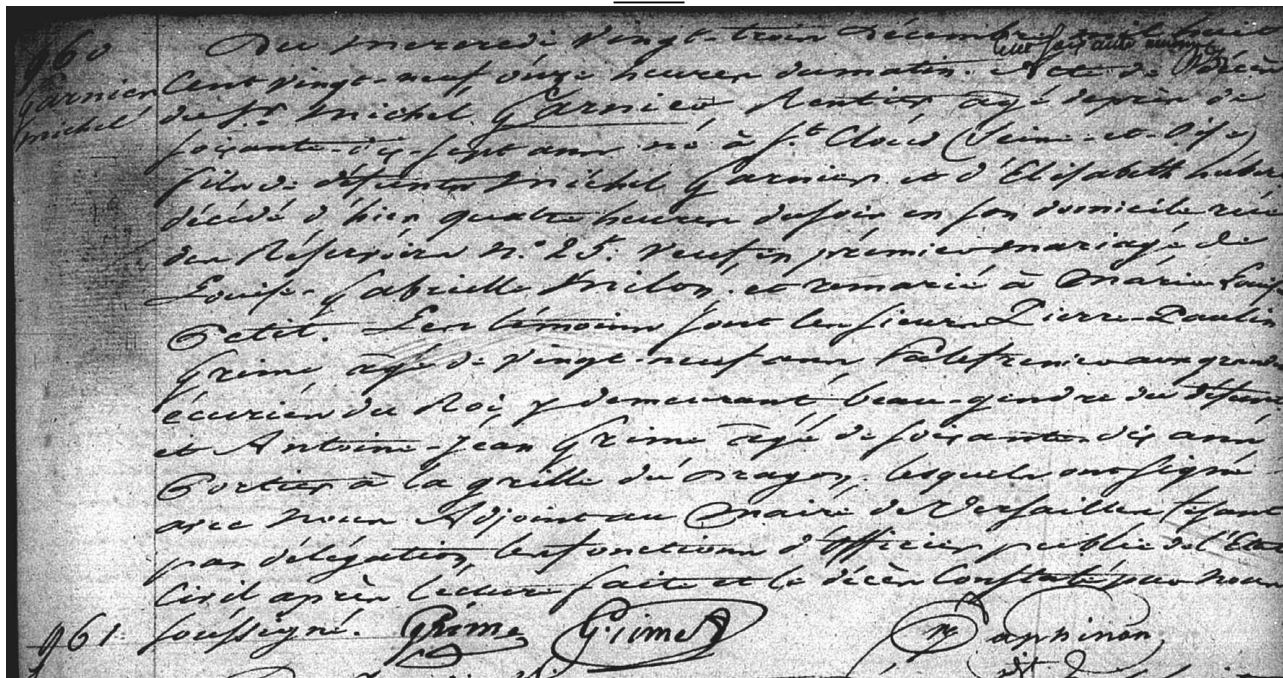 960
Garnier
michel
Du mercredi vingt-trois Décembre mil huit
Cent vingt-neuf onze heures du matin. Acte de Décès
du Sr. Michel Garnier, Rentier âgé de près de
soixante-dix-sept ans né à St. Cloud (Seine-et-Oise)
fils de défunts Michel Garnier et d'Elisabeth huber
décédé d'hier quatre heures du soir en son domicile rue
des Réservoirs N.º 25. veuf en premier mariage de
Louise-Gabrielle Milon, et remarié à Marie Louise
Petit. Les témoins sont les sieurs Pierre-Paulin
Grime âgé de vingt-neuf ans Palefrenier aux grandes
écuries du Roi, y demeurant beau-gendre du défunt
et Antoine-Jean Grime âgé de soixante-dix ans
Portier à la grille du Dragon, lesquels ont signé
avec nous Adjoint au Maire de Versailles faisant
par délégation, les fonctions d'Officier public de l'Etat
Civil après lecture faite et le décès Constaté par nous
soussigné. Grime Grime
961